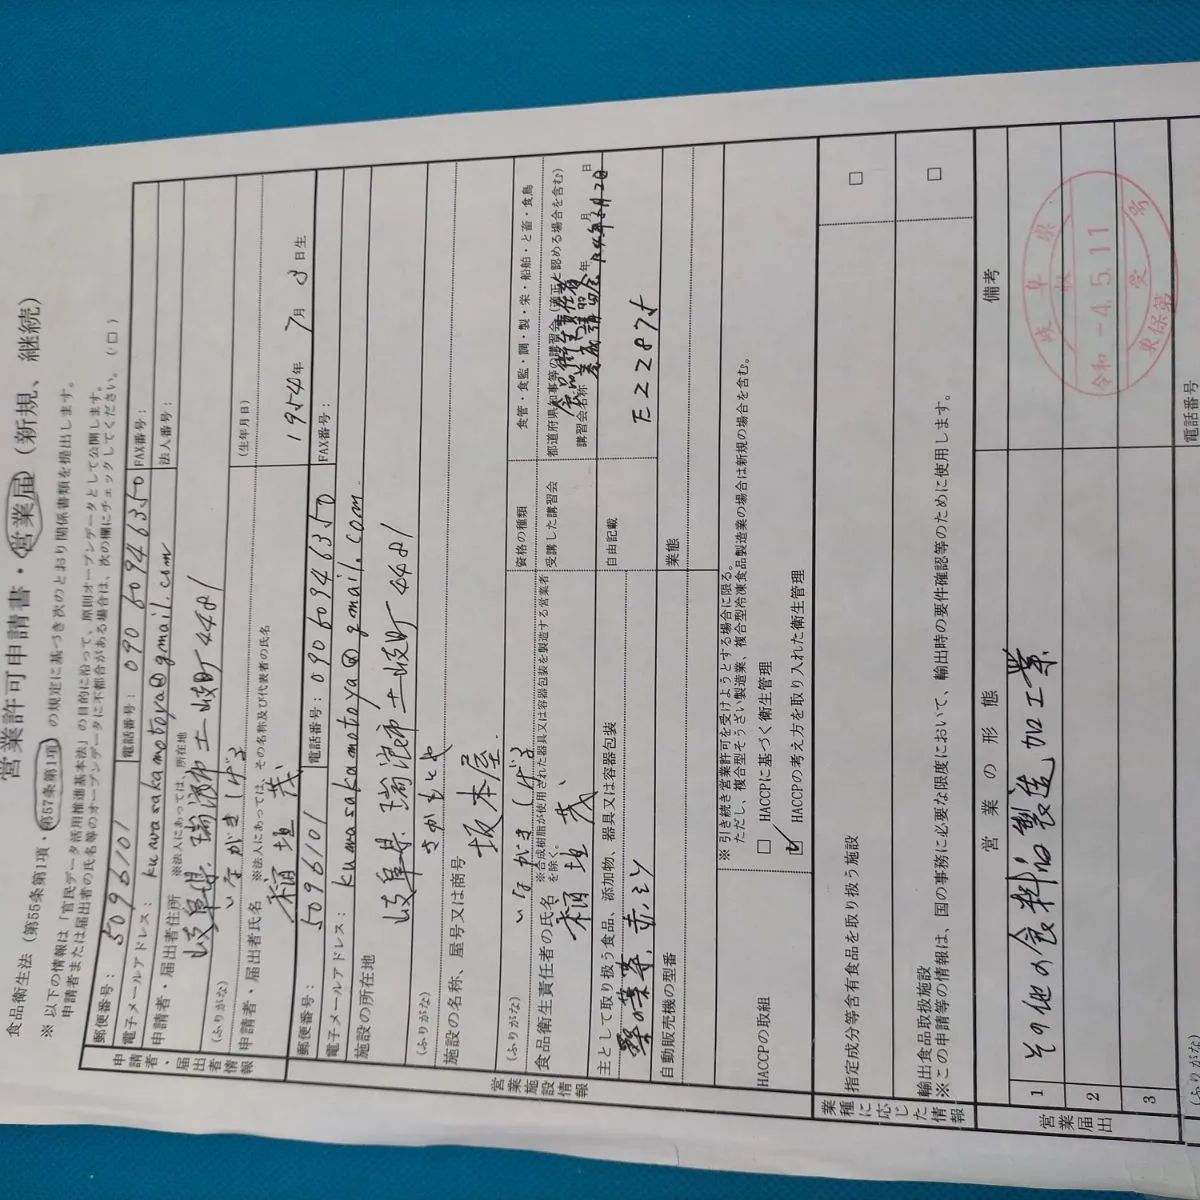 営業許可申請書・営業届（新規、継続）
食品衛生法（第55条第1項・第57条第1項）の規定に基づき次のとおり関係書類を提出します。
※以下の情報は「官民データ活用推進基本法」の目的に沿って、原則オープンデータとして公開します。
申請者または届出者の氏名等のオープンデータに不都合がある場合は、次の欄にチェックしてください。（□）
申請者・届出者情報
郵便番号：5096101 電話番号：09060946350 FAX番号：
電子メールアドレス：kuwasakamotoya@gmail.com 法人番号：
申請者・届出者住所 ※法人にあっては、所在地
岐阜県瑞浪市土岐町4481
（ふりがな） いながきしげる
申請者・届出者氏名 ※法人にあっては、その名称及び代表者の氏名 （生年月日）
稲垣茂 1954年7月3日生
営業施設情報
郵便番号：5096101 電話番号：09060946350 FAX番号：
電子メールアドレス：kuwasakamotoya@gmail.com
施設の所在地
岐阜県瑞浪市土岐町4481
（ふりがな） さかもとや
施設の名称、屋号又は商号
坂本屋
（ふりがな） いながきしげる 資格の種類 食管・食監・調・製・栄・船舶・と畜・食鳥
食品衛生責任者の氏名 ※合成樹脂が使用された器具又は容器包装を製造する営業者を除く。 受講した講習会 都道府県知事等の講習会（適正と認める場合を含む）
稲垣茂 講習会名称 食品衛生責任者養成講習会 年 月 日
主として取り扱う食品、添加物、器具又は容器包装 自由記載 E22875
桑の葉茶,赤シソ
自動販売機の型番 業態
HACCPの取組
※引き続き営業許可を受けようとする場合に限る。
ただし、複合型そうざい製造業、複合型冷凍食品製造業の場合は新規の場合を含む。
□ HACCPに基づく衛生管理
☑ HACCPの考え方を取り入れた衛生管理
業種に応じた情報
指定成分等含有食品を取り扱う施設 □
輸出食品取扱施設 □
※この申請等の情報は、国の事務に必要な限度において、輸出時の要件確認等のために使用します。
営業届出
営業の形態 備考
1 その他の食料品製造,加工業
2
3
岐阜県
収受
令和-4.5.11
東保第 号
（ふりがな） 電話番号